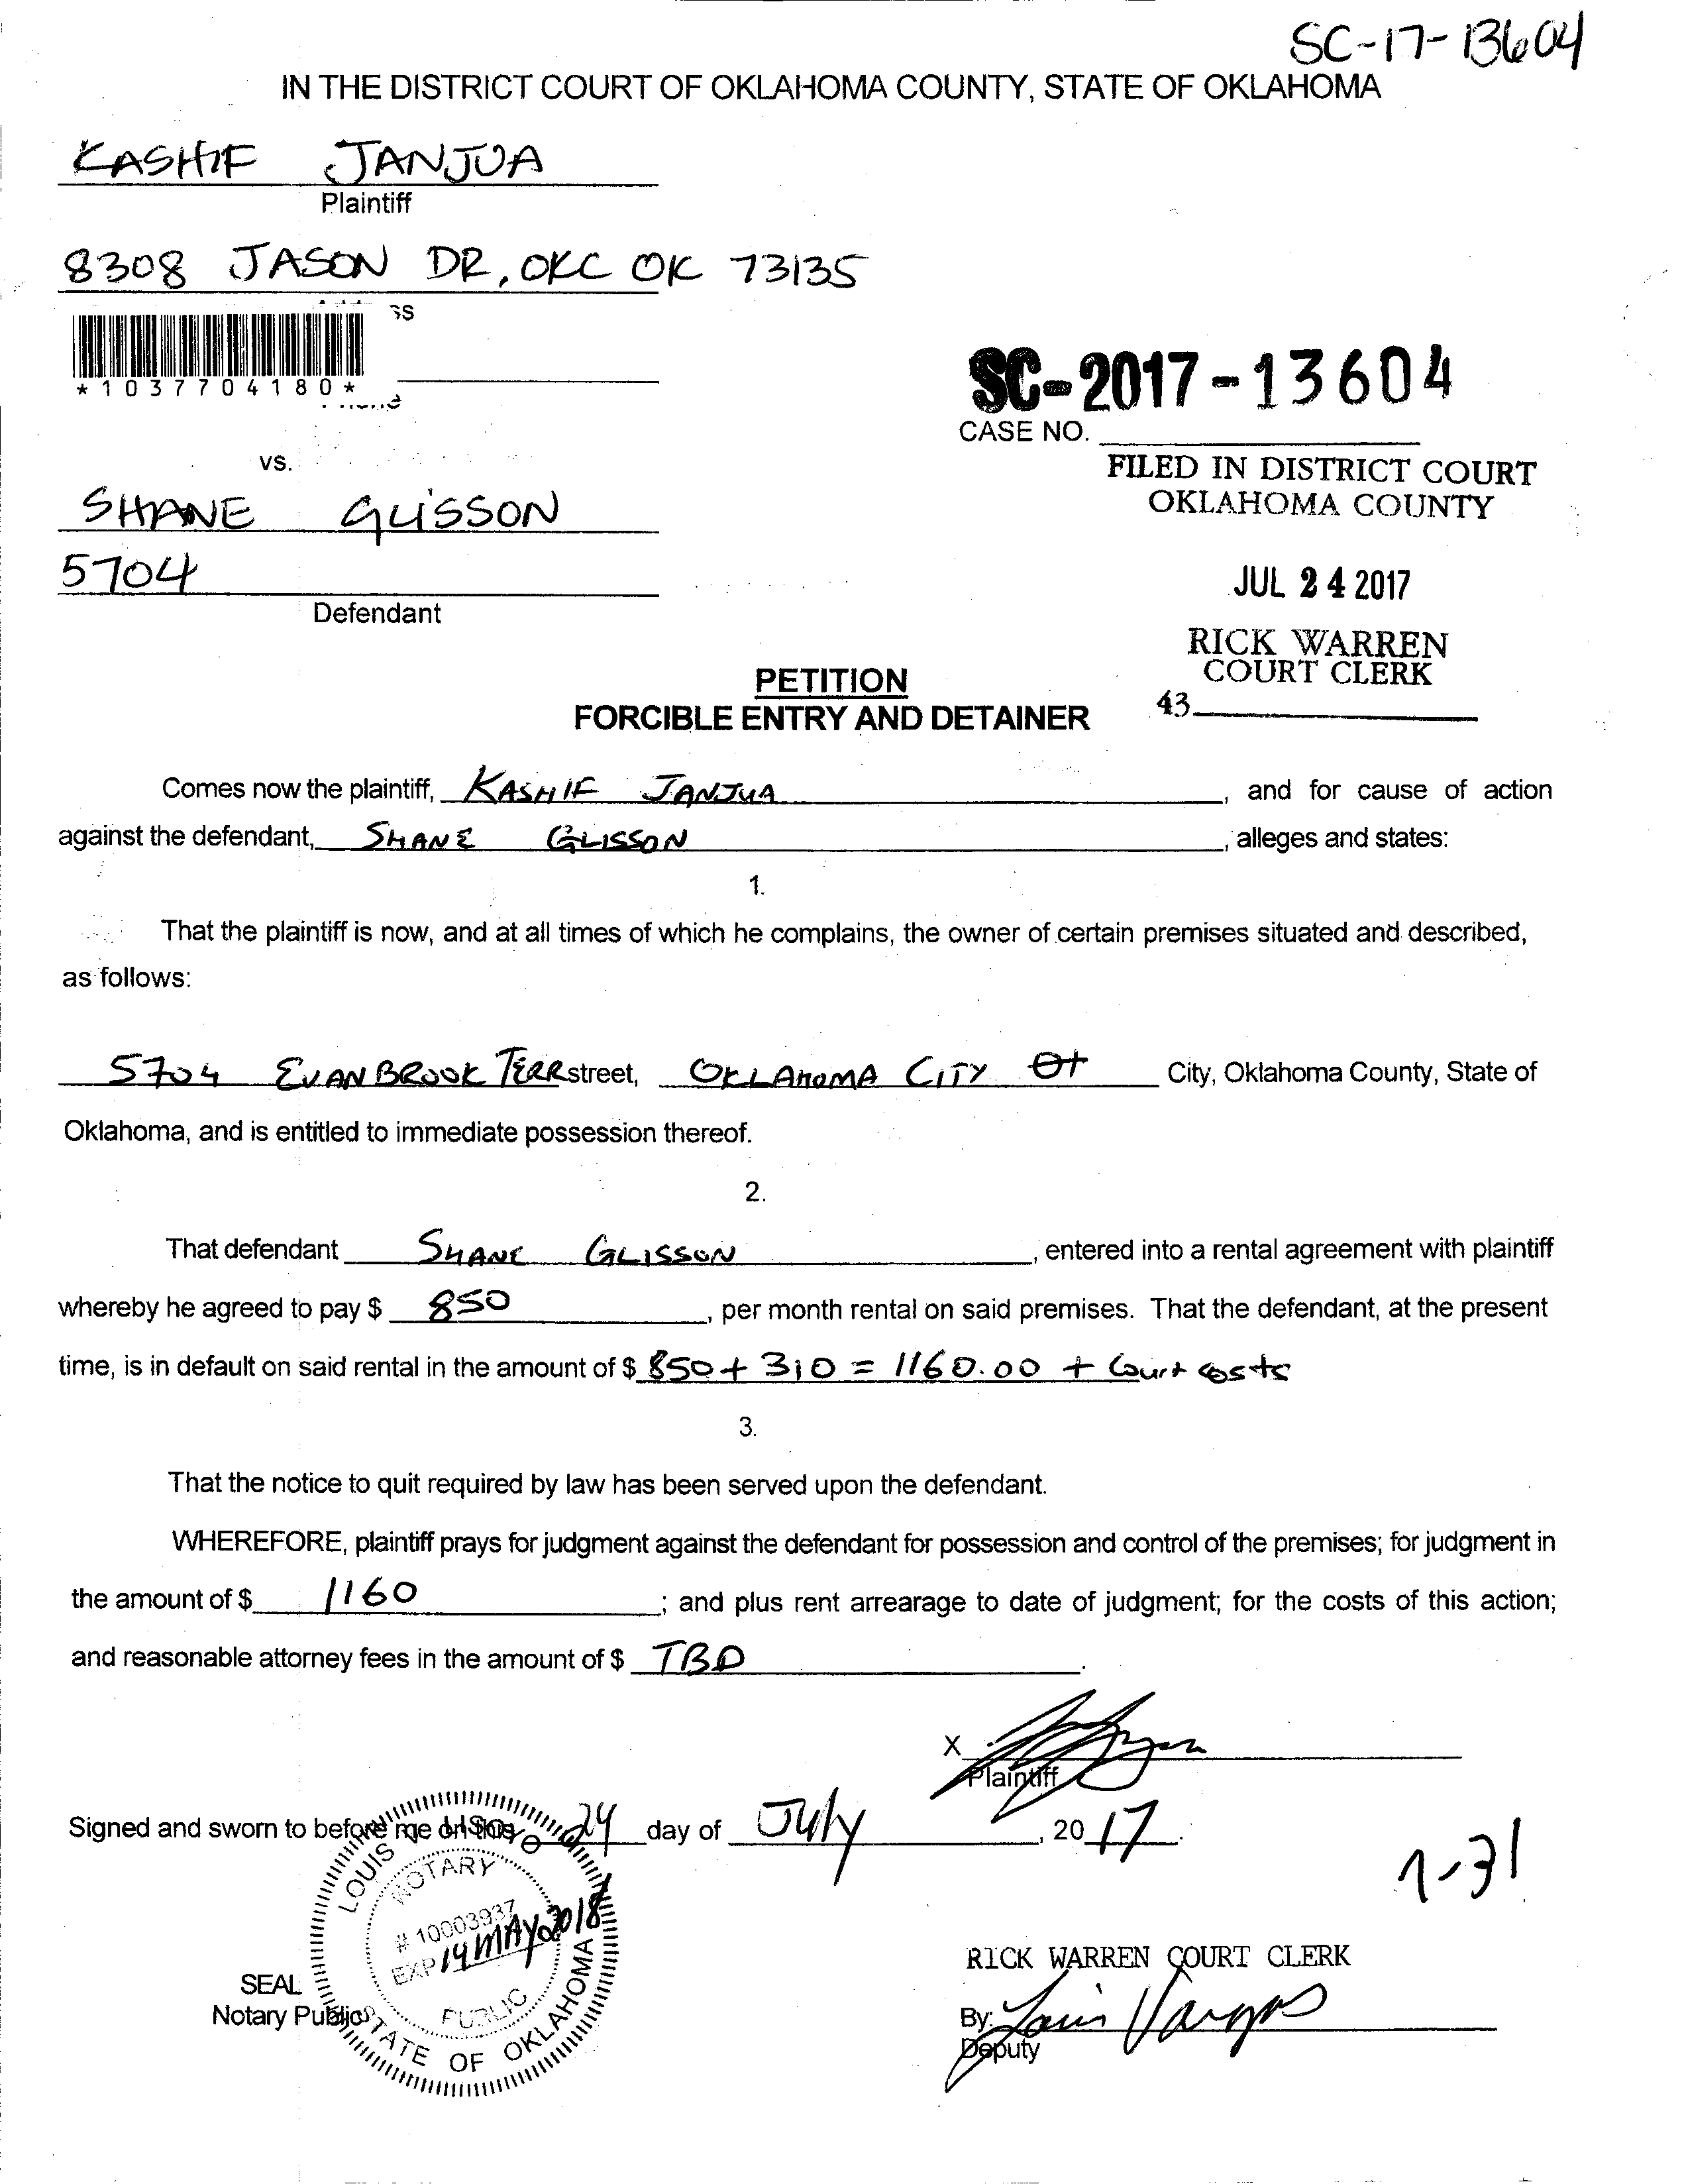 SC-17-13604
IN THE DISTRICT COURT OF OKLAHOMA COUNTY, STATE OF OKLAHOMA
KASHIF JANJUA
Plaintiff
8308 JASON DR, OKC OK 73135
ss
*1037704180*
SC-2017-13604
CASE NO.
vs.
FILED IN DISTRICT COURT
OKLAHOMA COUNTY
SHANE GLISSON
5704
Defendant
JUL 24 2017
RICK WARREN
COURT CLERK
43
PETITION
FORCIBLE ENTRY AND DETAINER
Comes now the plaintiff, KASHIF JANJUA, and for cause of action
against the defendant, SHANE GLISSON, alleges and states:
1.
That the plaintiff is now, and at all times of which he complains, the owner of certain premises situated and described,
as follows:
5704 EVANBROOK TERR street, OKLAHOMA CITY City, Oklahoma County, State of
Oklahoma, and is entitled to immediate possession thereof.
2.
That defendant SHANE GLISSON, entered into a rental agreement with plaintiff
whereby he agreed to pay $ 850, per month rental on said premises. That the defendant, at the present
time, is in default on said rental in the amount of $ 850 + 310 = 1160.00 + Court costs
3.
That the notice to quit required by law has been served upon the defendant.
WHEREFORE, plaintiff prays for judgment against the defendant for possession and control of the premises; for judgment in
the amount of $ 1160; and plus rent arrearage to date of judgment; for the costs of this action;
and reasonable attorney fees in the amount of $ TBD.
X
Plaintiff
Signed and sworn to before me on this 24 day of July, 2017.
7-31
LOUIS
NOTARY
# 10003937
EXP 14 MAY 2018
PUBLIC
STATE OF OKLAHOMA
SEAL
Notary Public
RICK WARREN COURT CLERK
By:
Deputy